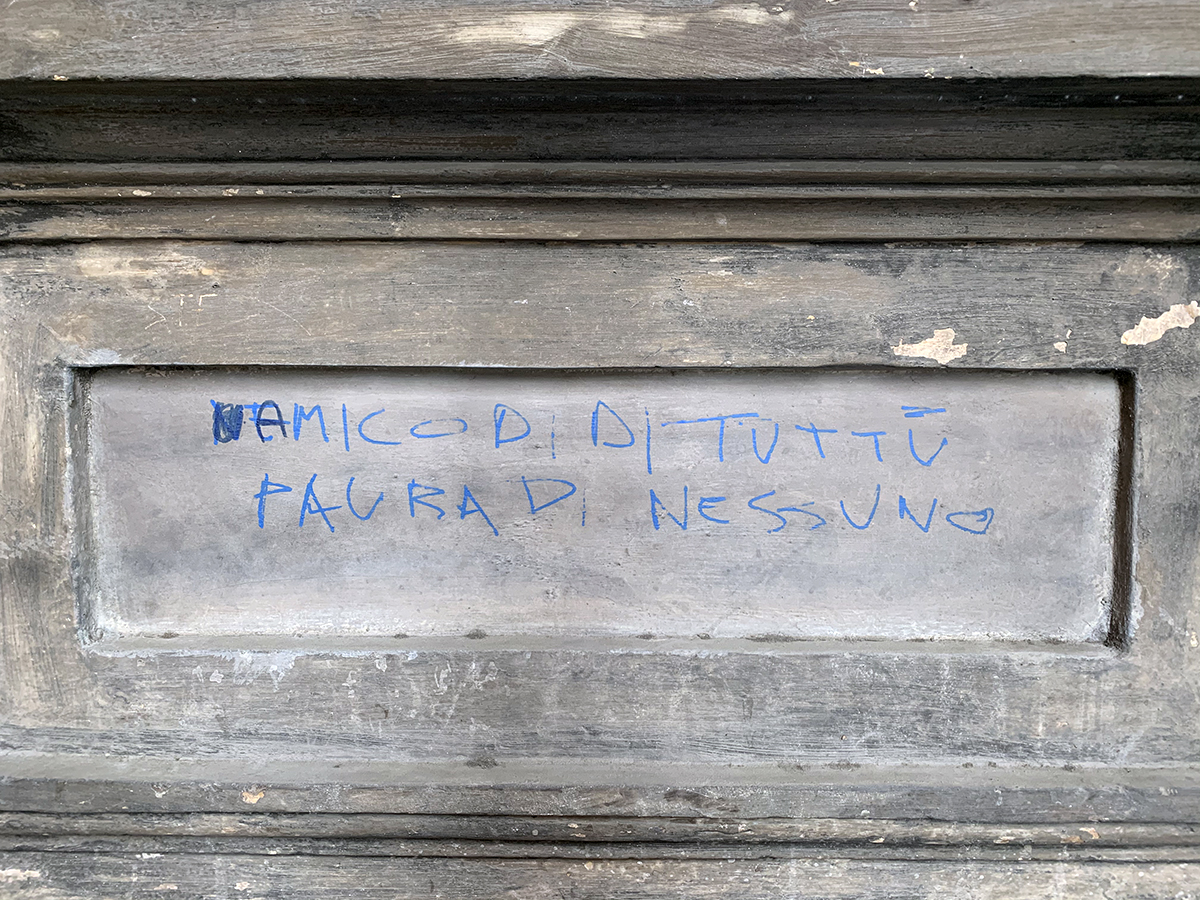 AMICO DI DI TUTTU
PAURA DI NESSUNO